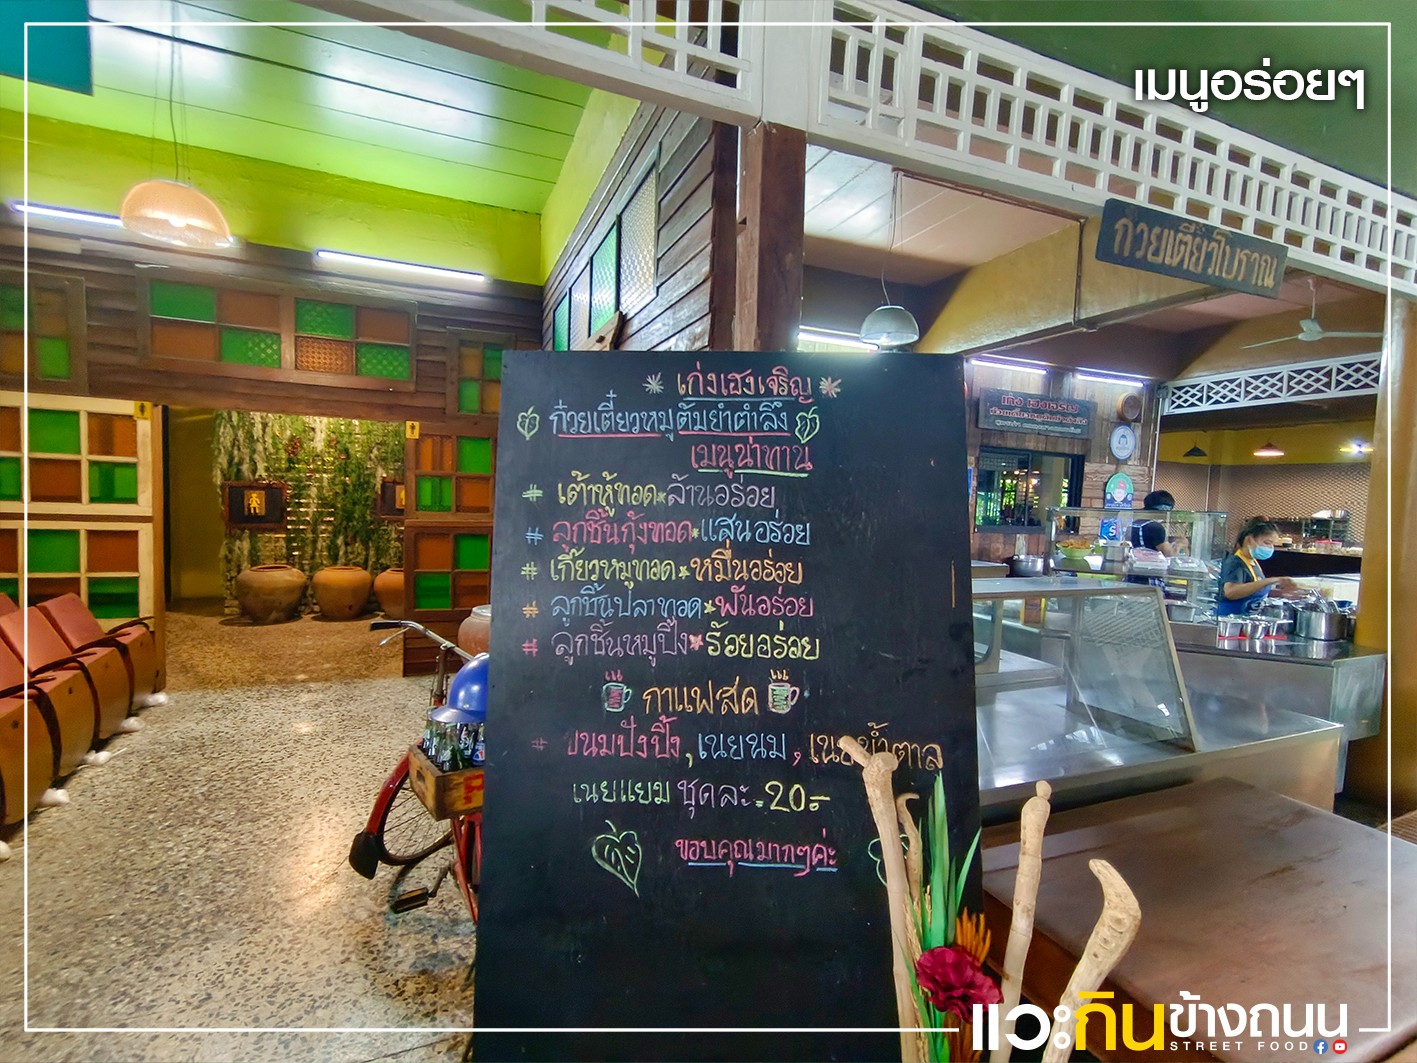 เมนูอร่อยๆ
ก๋วยเตี๋ยวโบราณ
เก่งเฮงเจริญ
ก๋วยเตี๋ยวหมูต้มยำตำลึง
เมนูน่าทาน
# เต้าหู้ทอด*ล้านอร่อย
# ลูกชิ้นกุ้งทอด*แสนอร่อย
# เกี๊ยวหมูทอด*หมื่นอร่อย
# ลูกชิ้นปลาทอด*พันอร่อย
# ลูกชิ้นหมูปิ้ง*ร้อยอร่อย
กาแฟสด
# ขนมปังปิ้ง, เนยนม, เนยน้ำตาล
เนยแยม ชุดละ.20.-
ขอบคุณมากๆค่ะ
เก่ง เฮงเจริญ
แวะกินข้างถนน
STREET FOOD